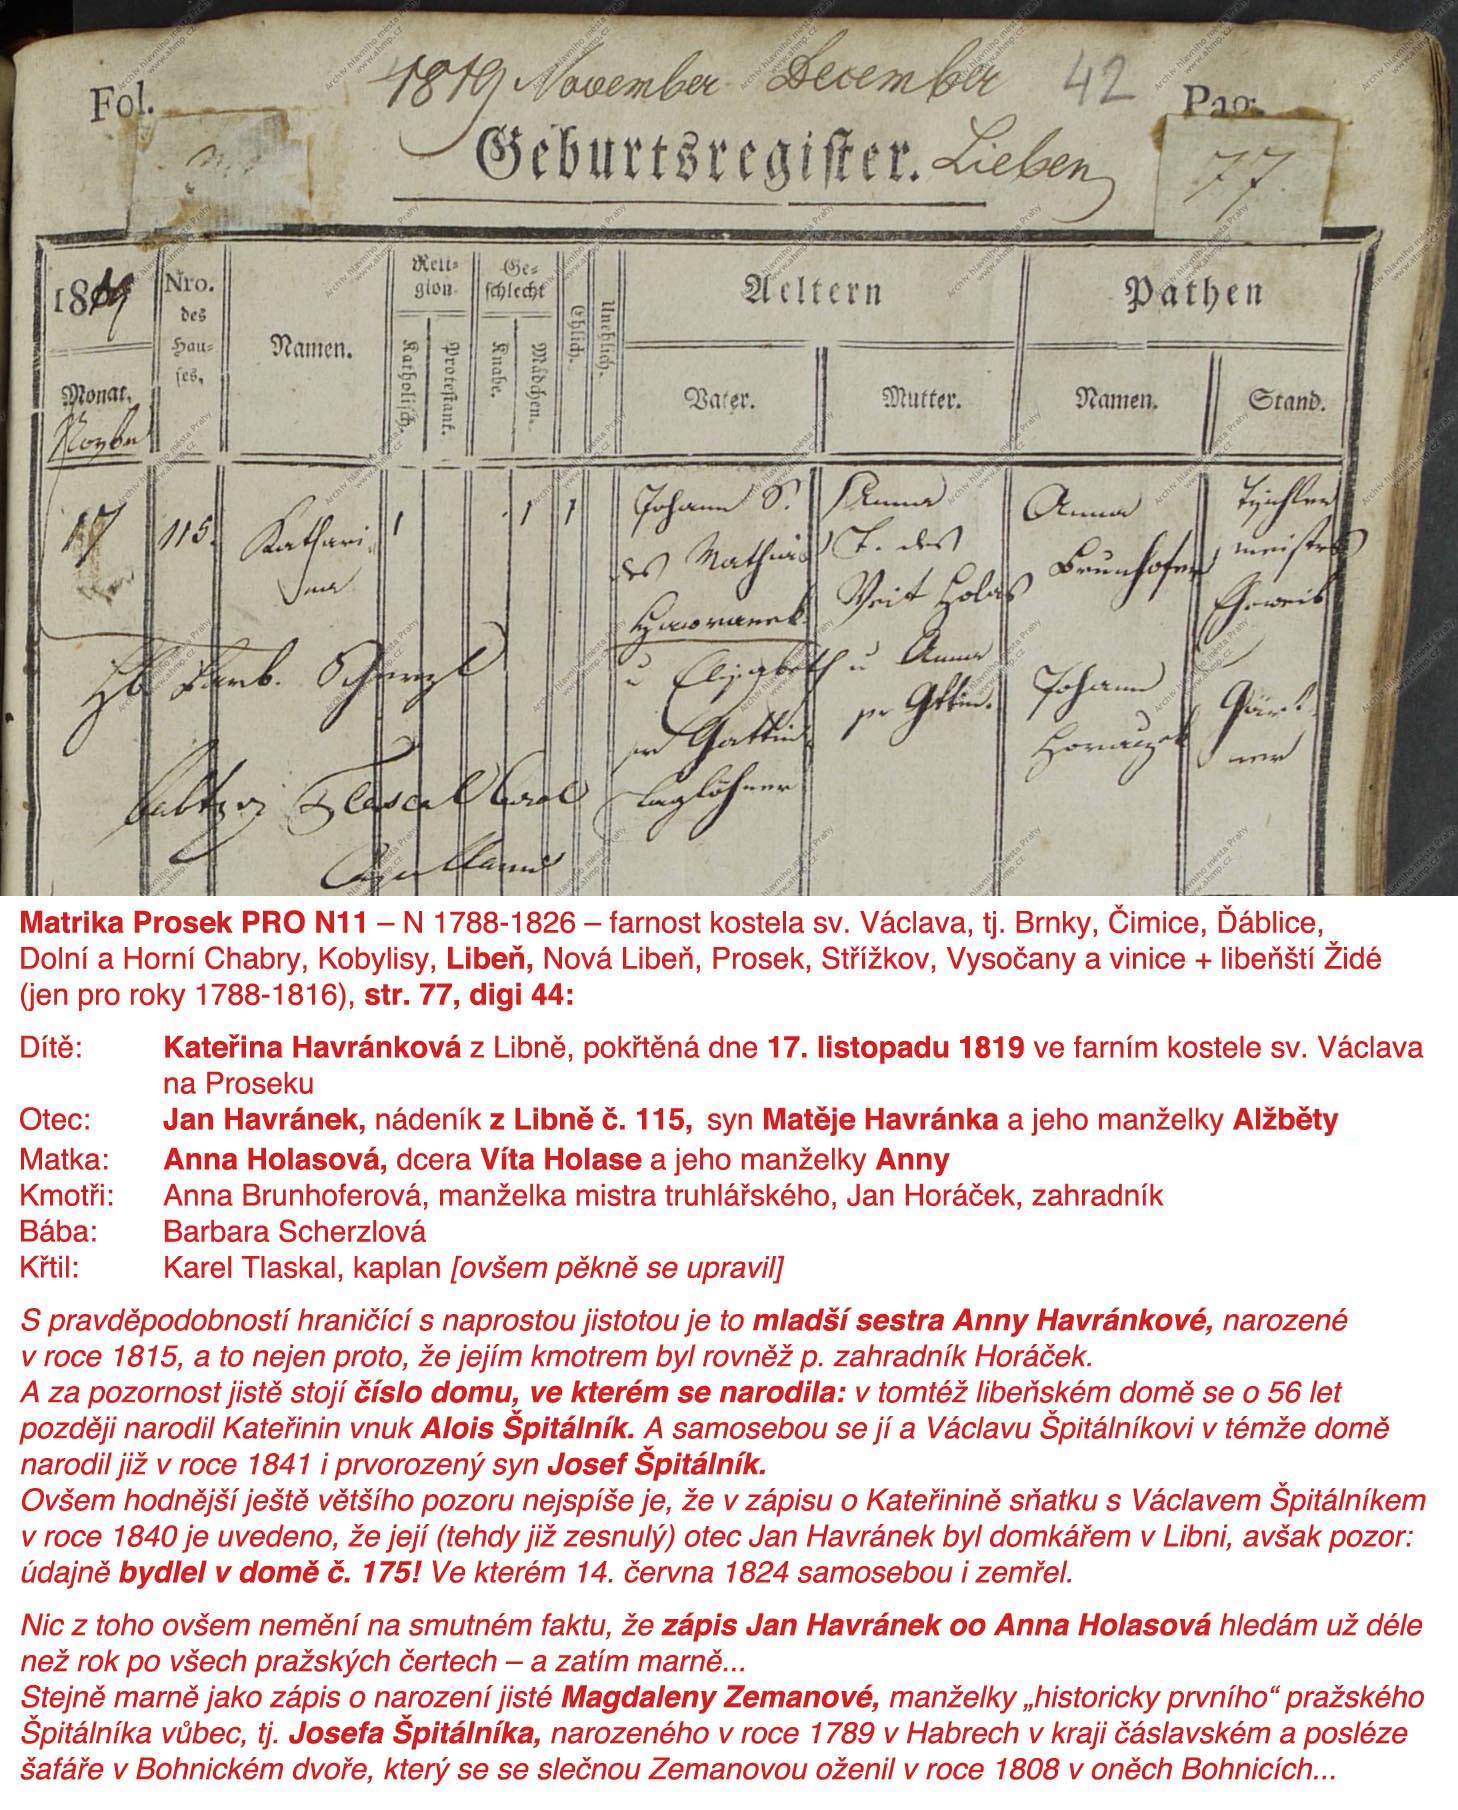 Fol.
1819 November December 42 Pag.
Geburtsregister. Lieben 77
1819
Nro. des Hau-ses,
Namen.
Reli-gion
Ge-schlecht
Ehlich.
Unehlich.
Aeltern
Pathen
Monat.
Katholisch.
Protestant.
Knabe.
Mädchen.
Vater.
Mutter.
Namen.
Stand.
Novbr
17 115. Kathari
na
1 1 1
Johann S.
des Mathias
Hawranek
u Elisabeth
sr Gattin
Taglöhner
Anna
T. des
Veit Holas
u Anna
sr Gttin.
Anna
Brunhofer
Johann
Horaczek
Tischler
meisters
Eheweib
Gärt-
ner
Hb. Barb. Scherzl
Tlascal Carol
Capellann
Matrika Prosek PRO N11 – N 1788-1826 – farnost kostela sv. Václava, tj. Brnky, Čimice, Ďáblice,
Dolní a Horní Chabry, Kobylisy, Libeň, Nová Libeň, Prosek, Střížkov, Vysočany a vinice + libeňští Židé
(jen pro roky 1788-1816), str. 77, digi 44:
Dítě: Kateřina Havránková z Libně, pokřtěná dne 17. listopadu 1819 ve farním kostele sv. Václava
na Proseku
Otec: Jan Havránek, nádeník z Libně č. 115, syn Matěje Havránka a jeho manželky Alžběty
Matka: Anna Holasová, dcera Víta Holase a jeho manželky Anny
Kmotři: Anna Brunhoferová, manželka mistra truhlářského, Jan Horáček, zahradník
Bába: Barbara Scherzlová
Křtil: Karel Tlaskal, kaplan [ovšem pěkně se upravil]
S pravděpodobností hraničící s naprostou jistotou je to mladší sestra Anny Havránkové, narozené
v roce 1815, a to nejen proto, že jejím kmotrem byl rovněž p. zahradník Horáček.
A za pozornost jistě stojí číslo domu, ve kterém se narodila: v tomtéž libeňském domě se o 56 let
později narodil Kateřinin vnuk Alois Špitálník. A samosebou se jí a Václavu Špitálníkovi v témže domě
narodil již v roce 1841 i prvorozený syn Josef Špitálník.
Ovšem hodnější ještě většího pozoru nejspíše je, že v zápisu o Kateřinině sňatku s Václavem Špitálníkem
v roce 1840 je uvedeno, že její (tehdy již zesnulý) otec Jan Havránek byl domkářem v Libni, avšak pozor:
údajně bydlel v domě č. 175! Ve kterém 14. června 1824 samosebou i zemřel.
Nic z toho ovšem nemění na smutném faktu, že zápis Jan Havránek oo Anna Holasová hledám už déle
než rok po všech pražských čertech – a zatím marně...
Stejně marně jako zápis o narození jisté Magdaleny Zemanové, manželky „historicky prvního“ pražského
Špitálníka vůbec, tj. Josefa Špitálníka, narozeného v roce 1789 v Habrech v kraji čáslavském a posléze
šafáře v Bohnickém dvoře, který se se slečnou Zemanovou oženil v roce 1808 v oněch Bohnicích...